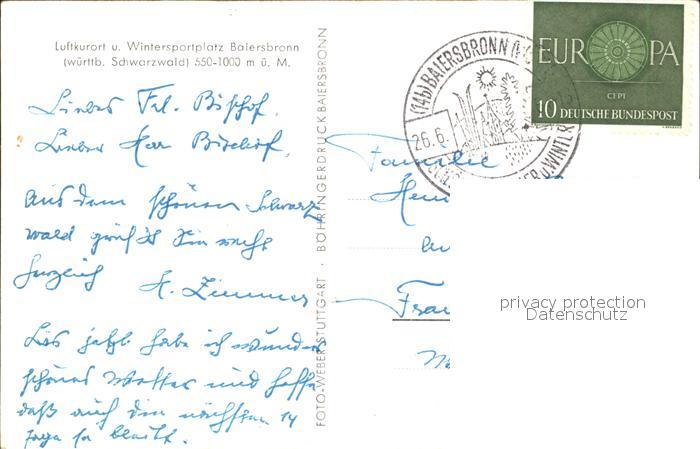 Luftkurort u. Wintersportplatz Baiersbronn
(württb. Schwarzwald) 550-1000 m ü. M.
Liebes Frl. Bischof,
Lieber Herr Bischof,
Aus dem schönen Schwarz
wald grüßt Sie recht
herzlich
H. Zimmer
Bis jetzt habe ich wunder
schönes Wetter und hoffe
daß auch die nächsten 14
Tage so bleibt.
FOTO-WEBER STUTTGART · BÖHRINGERDRUCK BAIERSBRONN
(14b) BAIERSBRONN
26.6.
EUROPA
CEPT
10 DEUTSCHE BUNDESPOST
Familie
Hein
privacy protection
Datenschutz